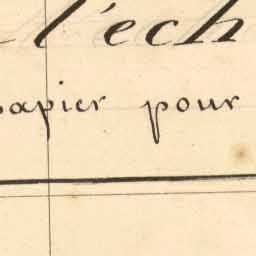 l'ech
papier pour